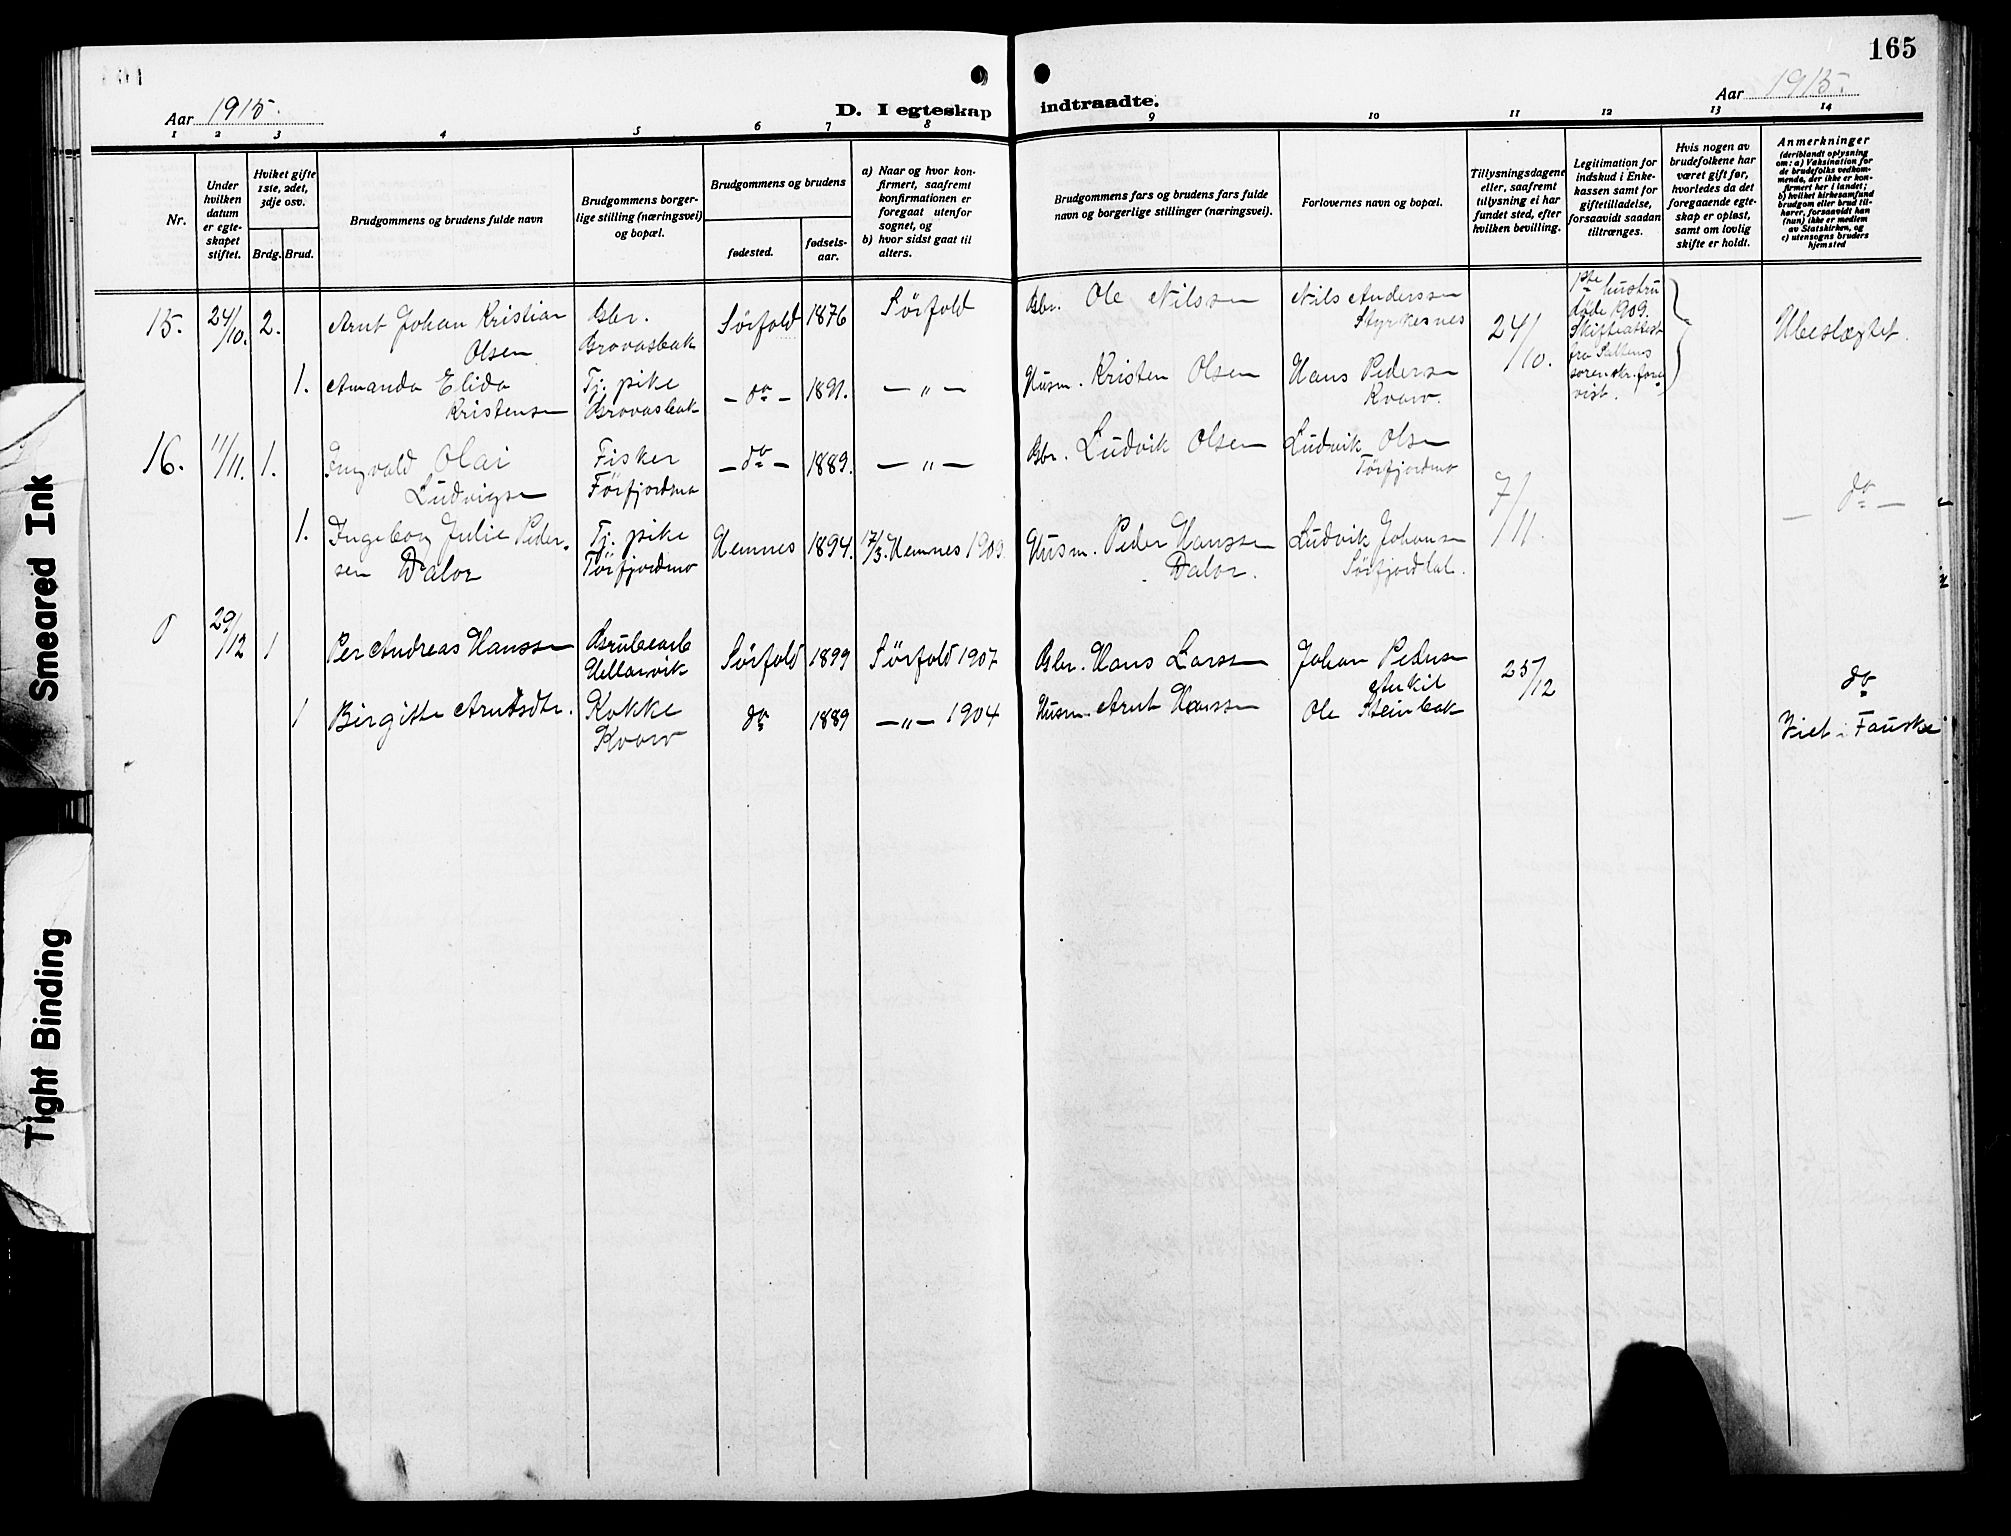 165
Aar 1915.
D. I egteskap indtraadte.
Aar 1915.
1 2 3 4 5 6 7 8 9 10 11 12 13 14
Nr.
Under hvilken datum er egteskapet stiftet.
Hviket gifte 1ste, 2det, 3dje osv.
Brdg. Brud.
Brudgommens og brudens fulde navn
Brudgommens borgerlige stilling (næringsvei) og bopæl.
Brudgommens og brudens
fødested.
fødselsaar.
a) Naar og hvor konfirmert, saafremt konfirmationen er foregaat utenfor sognet, og
b) hvor sidst gaat til alters.
Brudgommens fars og brudens fars fulde navn og borgerlige stillinger (næringsvei).
Forlovernes navn og bopæl.
Tillysningsdagene eller, saafremt tillysning ei har fundet sted, efter hvilken bevilling.
Legitimation for indskud i Enkekassen samt for giftetilladelse, forsaavidt saadan tiltrænges.
Hvis nogen av brudefolkene har været gift før, hvorledes da det foregaaende egteskap er opløst, samt om lovlig skifte er holdt.
Anmerkninger
(deriblandt oplysning om: a) Vaksination for de brudefolks vedkommende, der ikke er konfirmert her i landet; b) hvilket kirkesamfund brudgom eller brud tilhører, forsaavidt han (hun) ikke er medlem av Statskirken, og c) utensogns bruders hjemsted
15. 24/10. 2. Arnt Johan Kristian Olsen Gbr. Brovasbak Sørfold 1876 Sörfold Gbr. Ole Nilssen Nils Anderssen Styrkesnes 24/10. 1ste hustru døde 1909. Skifteattest fra Saltens sorenskr. forevist. Ubeslægtet.
1. Amanda Elida Kristensen Tj. pike Brovasbak - do - 1891. - " - Husm. Kristen Olsen Hans Pedersen Kvarv.
16. 11/11. 1. Ingvald Olai Ludvigsen Fisker Tørfjordmo - do - 1889. - " - Gbr. Ludvik Olsen Ludvik Olsen Tørfjordmo 7/11. - do -
1. Ingeborg Julie Pedersen Dalor Tj. pike Tørfjordmo Hemnes 1894. 17/3. Hemnes 1909 Husm. Peder Hanssen Dalor. Ludvik Johansen Sørfjorddal.
0 29/12 1 Per Andreas Hanssen Grubearb Hellarvik Sørfold 1899 Sørfold 1907 Gbr. Hans Larssen Johan Pedersen Ankil 25/12 do
1 Birgitte Arntsdtr. Kokke Kvarv do 1889 - " - 1904 Husm. Arnt Hanssen Ole Steinbak Viet i Fauske
Smeared Ink
Tight Binding